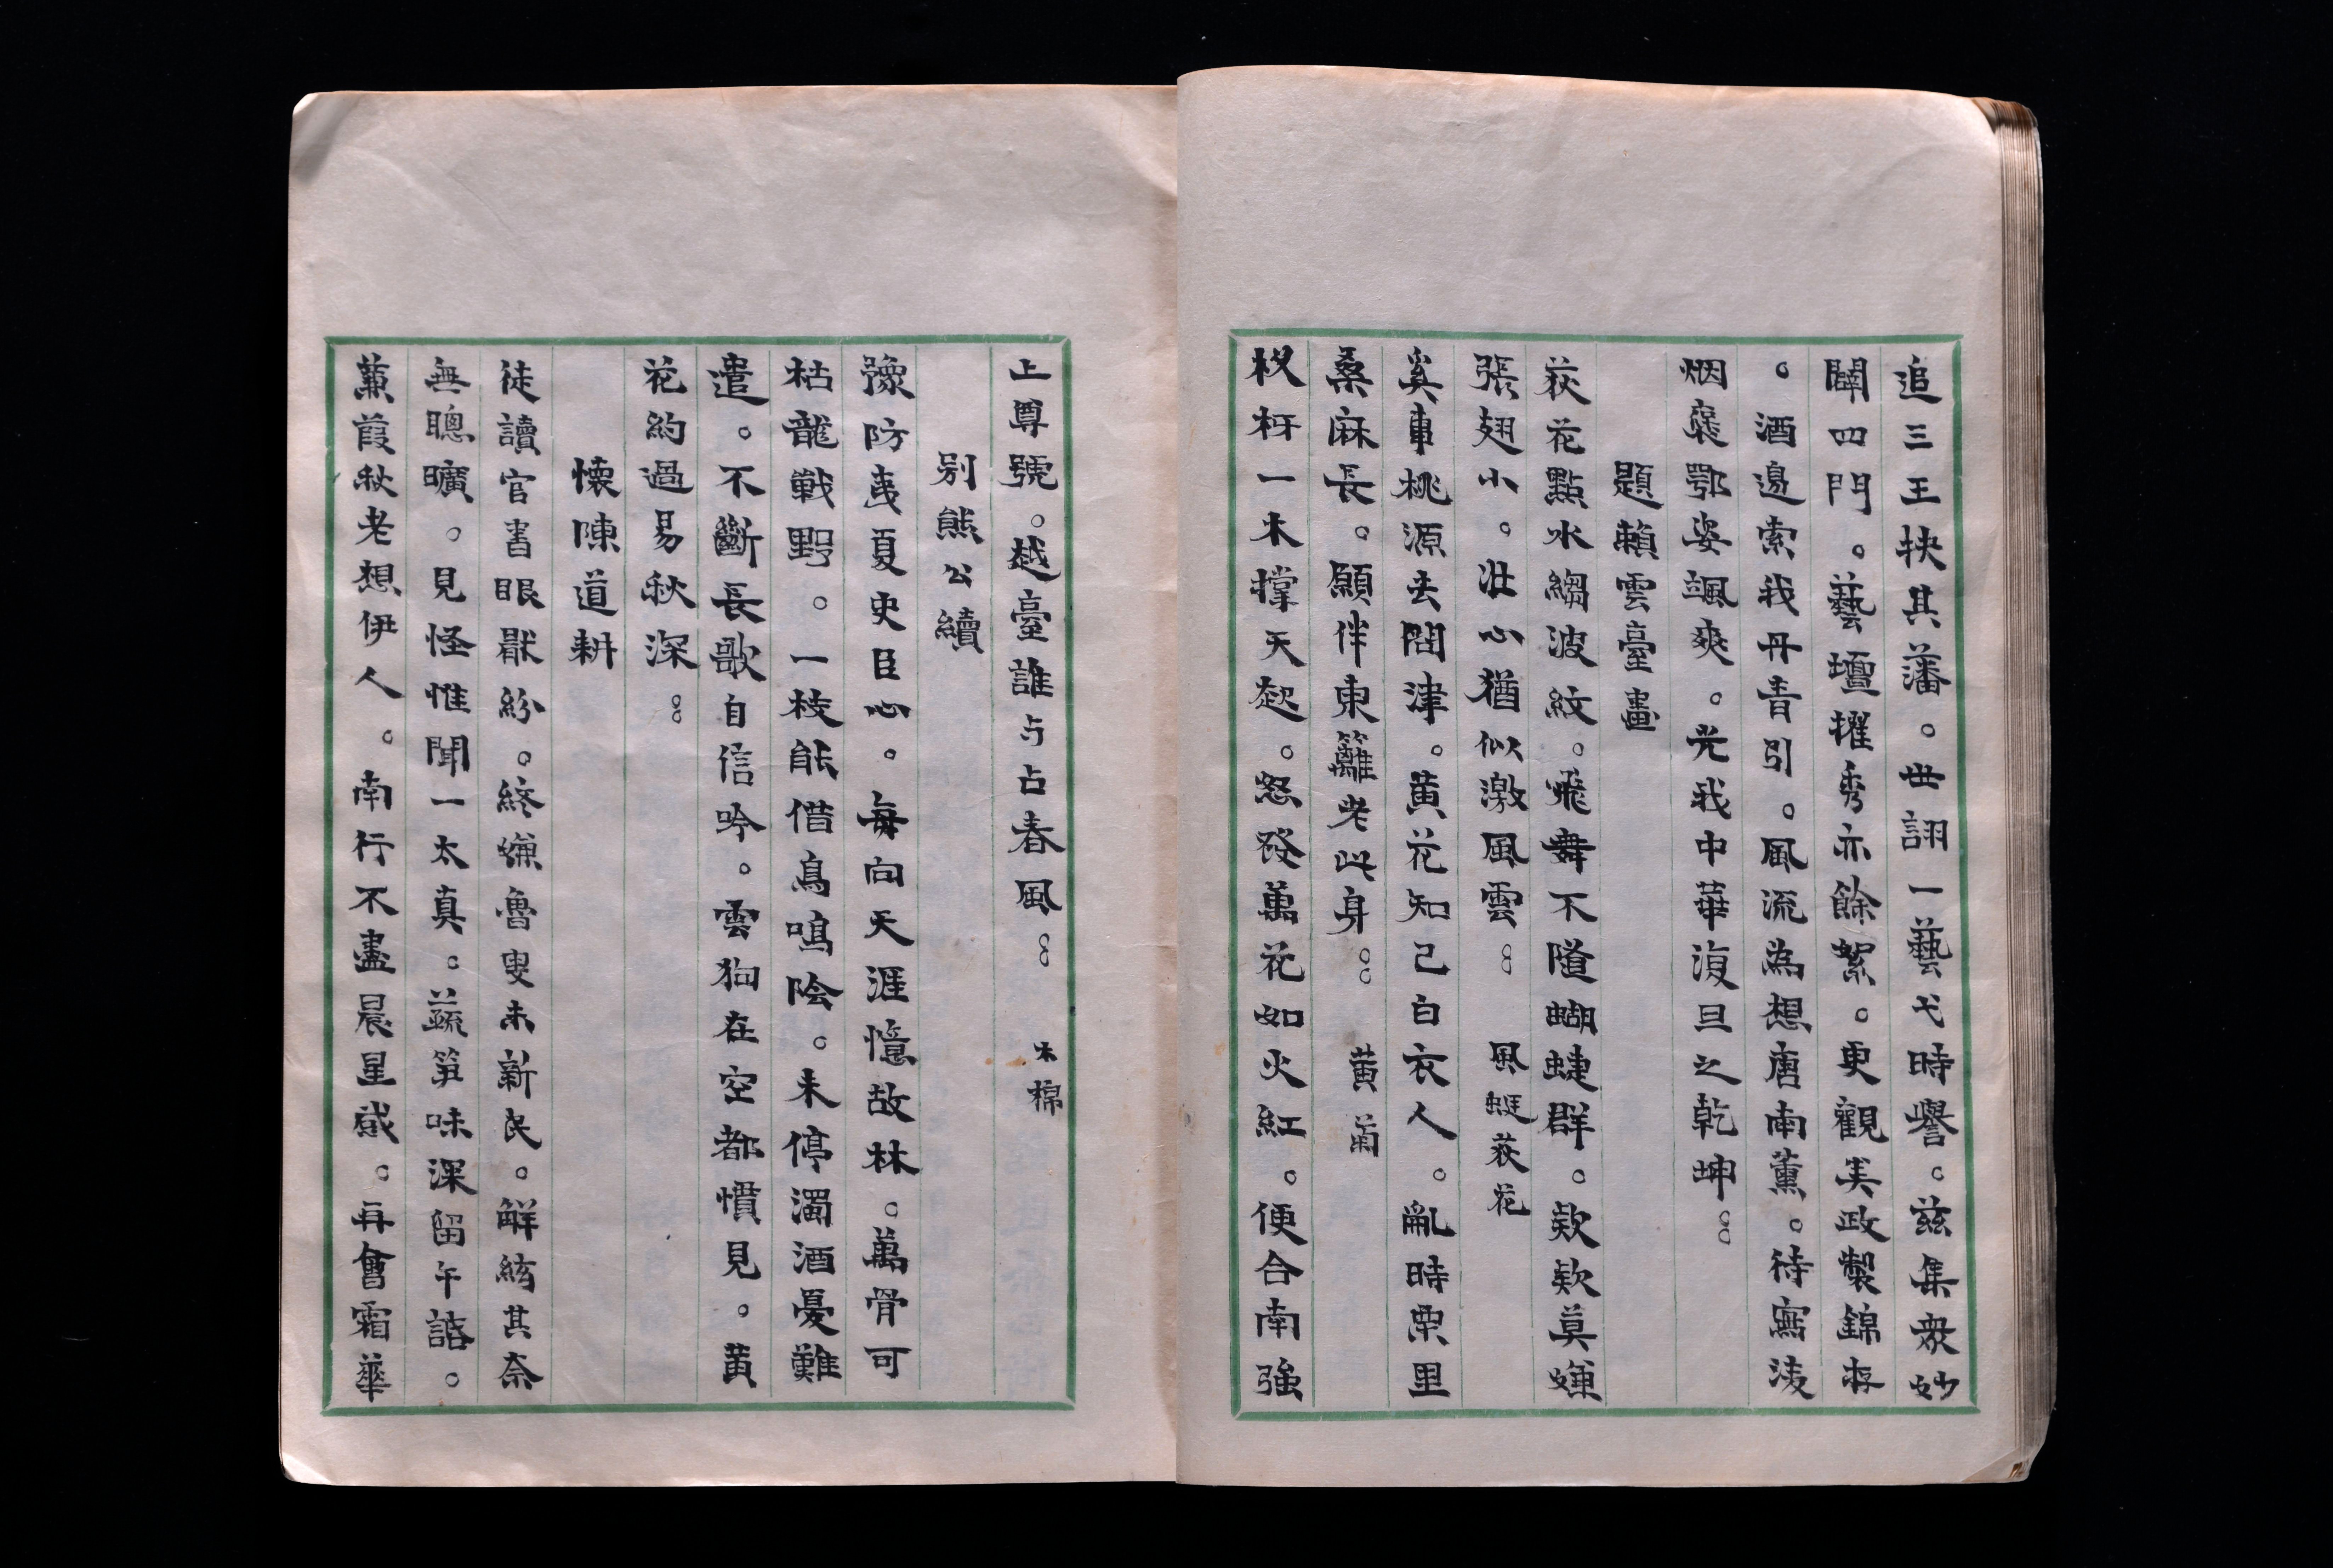 追三王抉其藩。世詡一藝弋時譽。茲集衆妙
闢四門。藝壇擢秀亦餘絮。更觀美政製錦存
。酒邊索我丹青引。風流為想唐南薰。待寫淩
烟褒鄂姿颯爽。光我中華復旦之乾坤。。
題賴雲臺畫
荻花點水縐波紋。飛舞不隨蝴蜨群。欵欵莫嫌
張翅小。壯心猶似激風雲。。 風蜓荻花
奚事桃源去問津。黄花知己白衣人。亂時栗里
桑麻長。願伴東籬老此身。。 黄菊
杈枒一木撐天起。怒發萬花如火紅。便合南強
上尊號。越臺誰占占春風。。 木棉
别熊公續
豫防夷夏史臣心。每向天涯憶故林。萬骨可
枯龍戰野。一枝能借鳥鳴陰。未停濁酒憂難
遣。不斷長歌自信吟。雲狗在空都慣見。黄
花約過易秋深。。
懷陳道耕
徒讀官書眼厭紛。終嫌魯叟未新民。解絃其奈
無聰曠。見怪惟聞一太真。蔬筍味深留午話。
蒹葭秋老想伊人。南行不盡晨星感。再會霜華